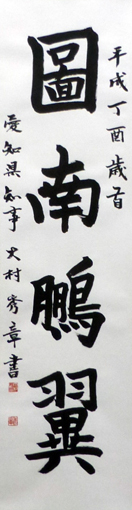 平成丁酉歳首
圖南鵬翼
愛知県知事 大村秀章書